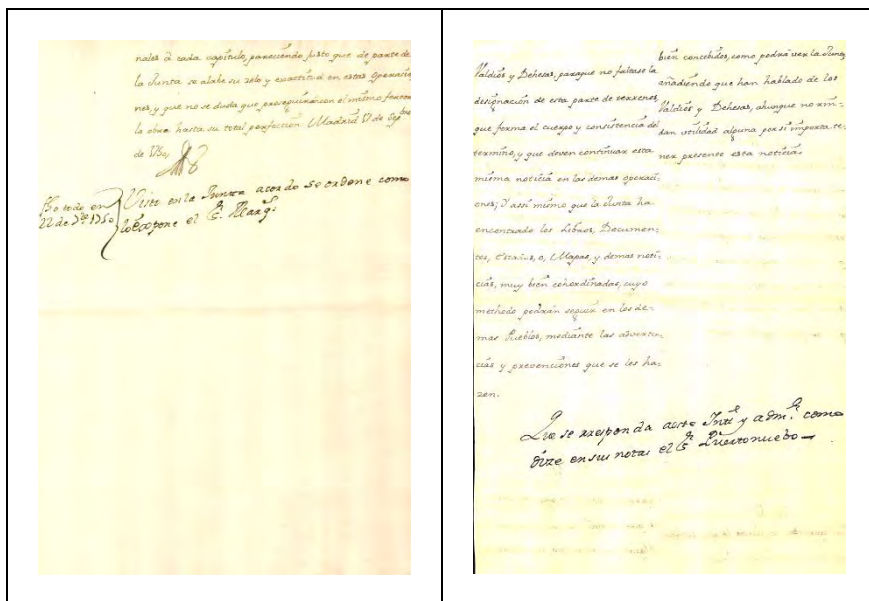 nales à cada capitulo, pareciendo justo que de parte de
la Junta se alabe su zelo y exactitud en estas Operacio
nes, y que no se duda que proseguiràn con el mismo fervor
la obra hasta su total perfección. Madrid 17 de Sep.bre
de 1750,
fho todo en
22 de 7re 1750
Visto en la Junta acordo se ordene como
lo expone el S.r Marq.s
Valdíos y Dehesas, paraque no faltase la
designación de esta parte de terrenos,
que forma el cuerpo y consistencia del
termino, y que deven continuar esta
misma noticia en las demas operaci-
ones; Y assi mismo que la Junta ha
encontrado los Libros, Documen-
tos, Estados, o, Mapas, y demas noti-
cias, muy bien cohordinadas, cuyo
methodo podràn seguir en los de-
mas Pueblos, mediante las adverten-
cias y prevenciones que se les ha-
zen.
bien concebidos, como podrà ver la Junta,
añadiendo que han hablado de los
Valdíos y Dehesas, ahunque no rin-
dan utilidad alguna por si importa te-
ner presente esta noticia.
Que se rresponda aeste Int.e y adm.r como
dize en sus notas el S.r Puertonuebo